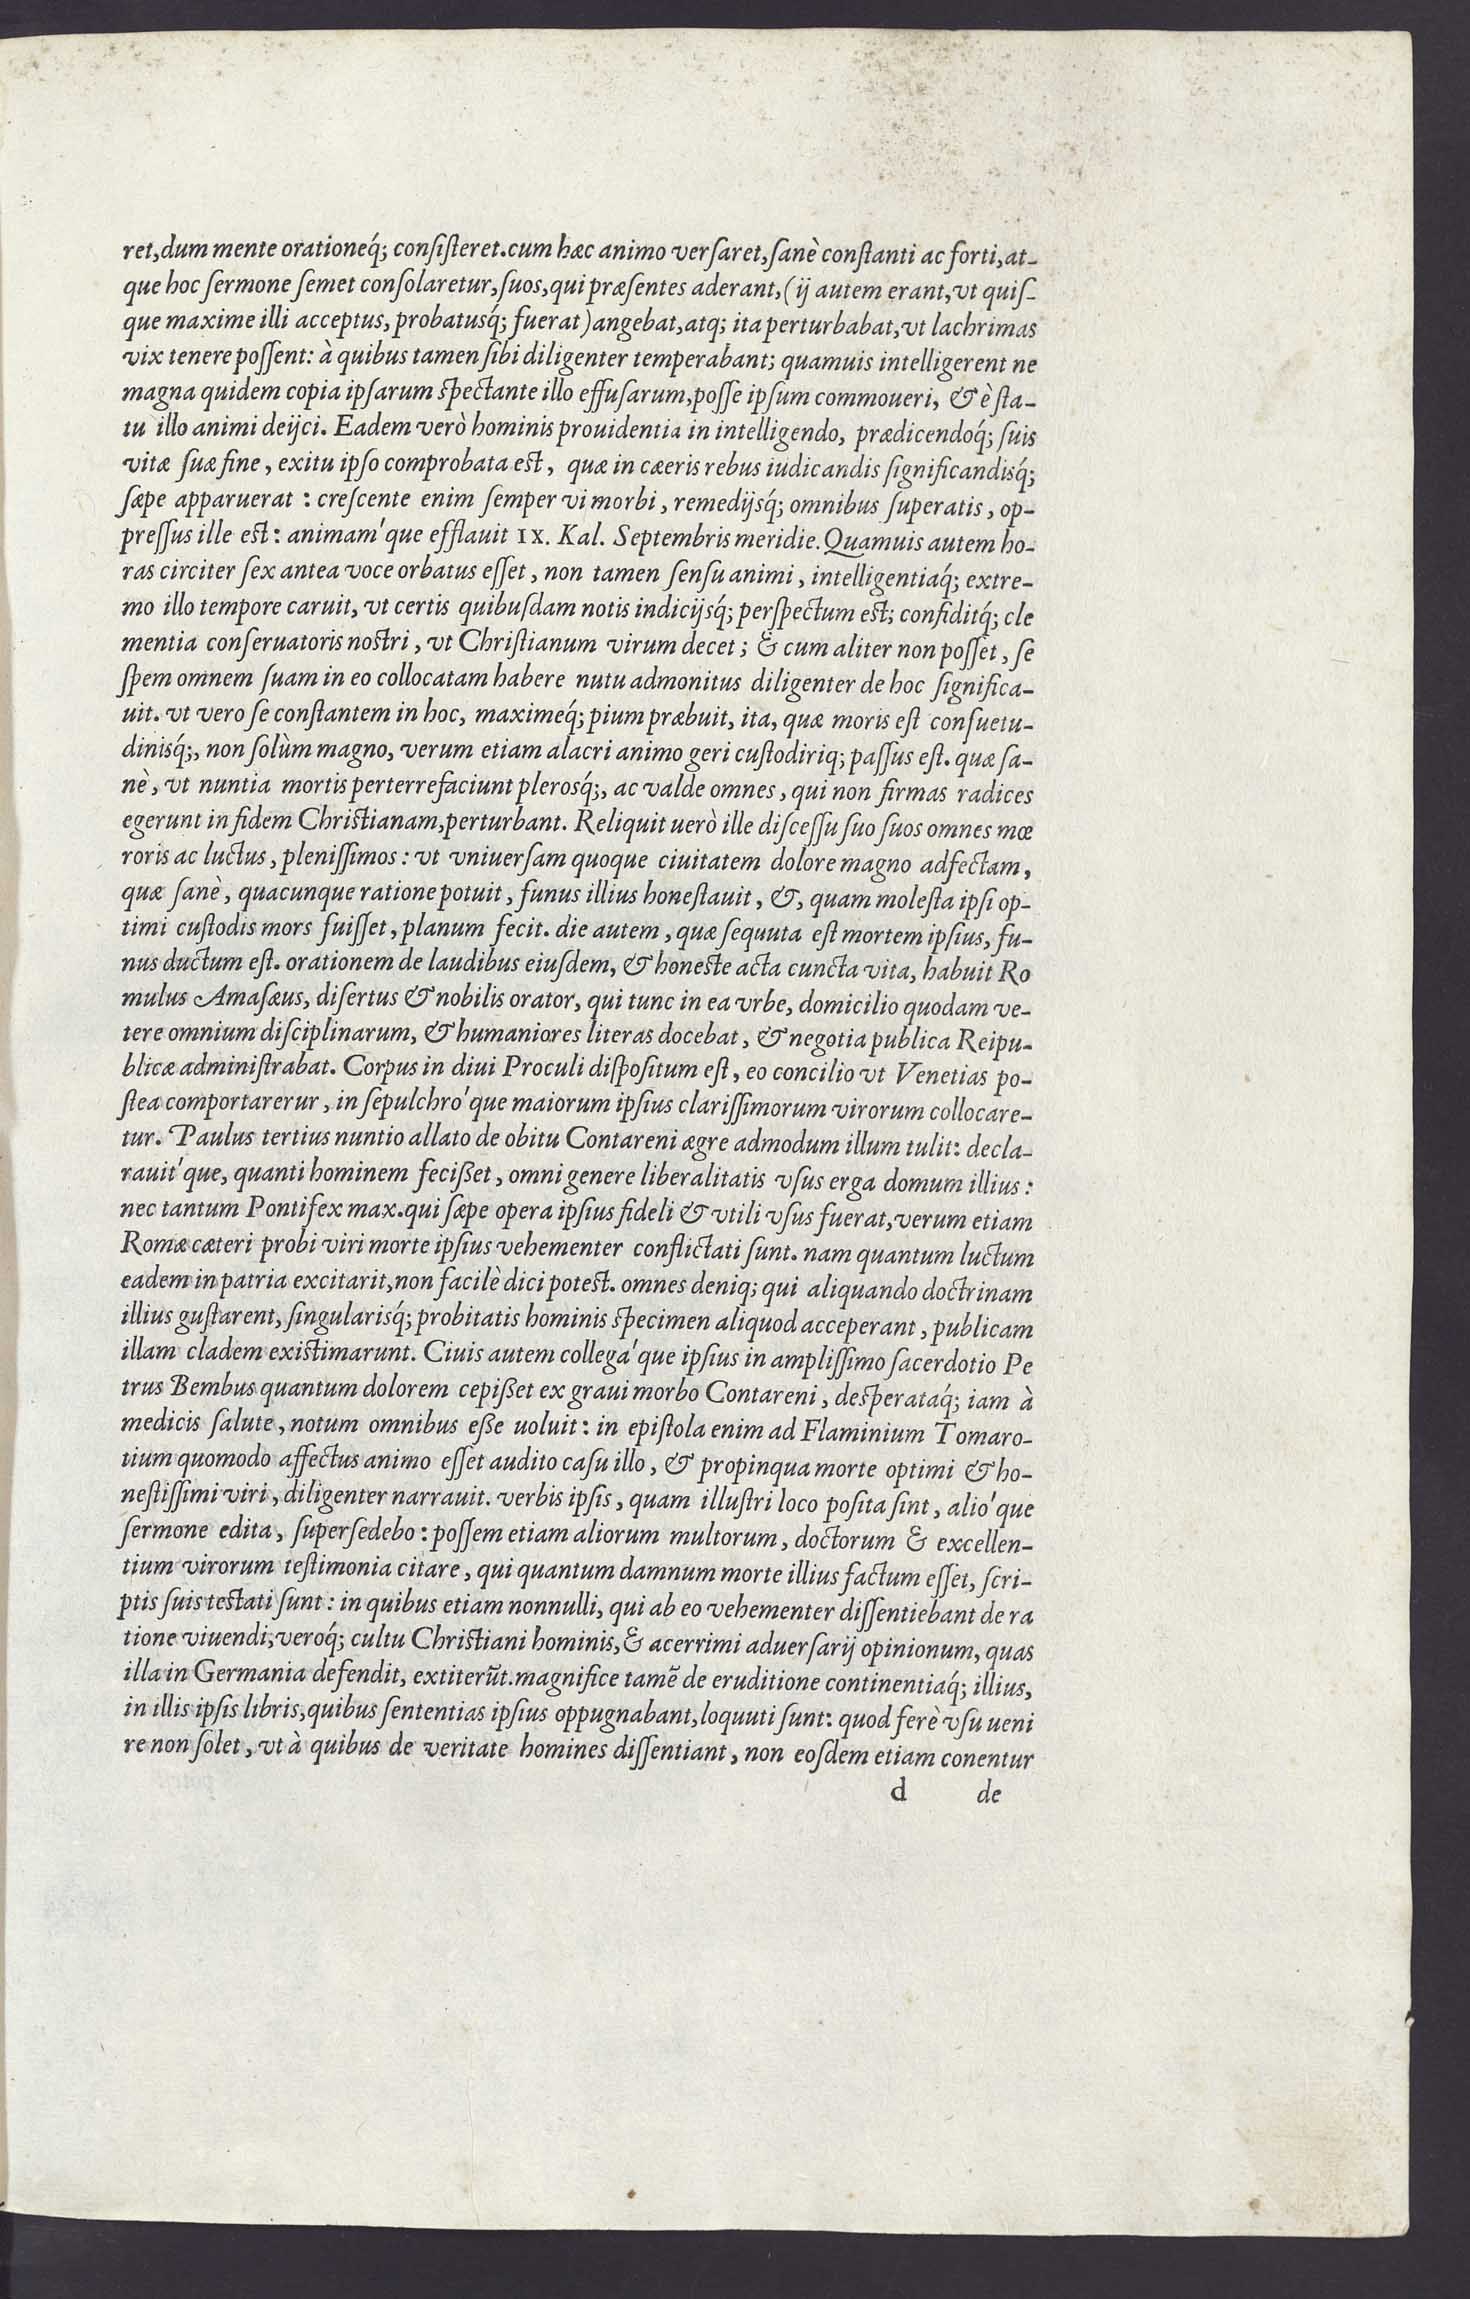 ret, dum mente orationeq́; conſiſteret. cum hæc animo verſaret, ſanè conſtanti ac forti, at-
que hoc ſermone ſemet conſolaretur, ſuos, qui præſentes aderant, (ij autem erant, vt quiſ-
que maxime illi acceptus, probatusq́; fuerat) angebat, atq; ita perturbabat, vt lachrimas
vix tenere poſſent: à quibus tamen ſibi diligenter temperabant; quamuis intelligerent ne
magna quidem copia ipſarum ſpectante illo effuſarum, poſſe ipſum commoueri, & è ſta-
tu illo animi deijci. Eadem verò hominis prouidentia in intelligendo, prædicendoq́; ſuis
vitæ ſuæ fine, exitu ipſo comprobata eſt, quæ in cæeris rebus iudicandis ſignificandisq́;
ſæpe apparuerat : creſcente enim ſemper vi morbi, remedijsq́; omnibus ſuperatis, op-
preſſus ille eſt: animam'que efflauit IX. Kal. Septembris meridie. Quamuis autem ho-
ras circiter ſex antea voce orbatus eſſet, non tamen ſenſu animi, intelligentiaq́; extre-
mo illo tempore caruit, vt certis quibuſdam notis indicijsq́; perſpectum eſt; confiditq́; cle
mentia conſeruatoris noſtri, vt Chriſtianum virum decet; & cum aliter non poſſet, ſe
ſpem omnem ſuam in eo collocatam habere nutu admonitus diligenter de hoc ſignifica-
uit. vt vero ſe conſtantem in hoc, maximeq́; pium præbuit, ita, quæ moris eſt conſuetu-
dinisq́;, non ſolùm magno, verum etiam alacri animo geri cuſtodiriq; paſſus eſt. quæ ſa-
nè, vt nuntia mortis perterrefaciunt plerosq́;, ac valde omnes, qui non firmas radices
egerunt in fidem Chriſtianam, perturbant. Reliquit uerò ille diſceſſu ſuo ſuos omnes mœ
roris ac luctus, pleniſſimos: vt vniuerſam quoque ciuitatem dolore magno adfectam,
quæ ſanè, quacunque ratione potuit, funus illius honeſtauit, &, quam moleſta ipſi op-
timi cuſtodis mors fuiſſet, planum fecit. die autem, quæ ſequuta eſt mortem ipſius, fu-
nus ductum eſt. orationem de laudibus eiuſdem, & honeſte acta cuncta vita, habuit Ro
mulus Amaſæus, diſertus & nobilis orator, qui tunc in ea vrbe, domicilio quodam ve-
tere omnium diſciplinarum, & humaniores literas docebat, & negotia publica Reipu-
blicæ adminiſtrabat. Corpus in diui Proculi diſpoſitum eſt, eo concilio vt Venetias po-
ſtea comportarerur, in ſepulchro'que maiorum ipſius clariſſimorum virorum collocare-
tur. Paulus tertius nuntio allato de obitu Contareni ægre admodum illum tulit: decla-
rauit'que, quanti hominem feciſſet, omni genere liberalitatis vſus erga domum illius:
nec tantum Pontifex max. qui ſæpe opera ipſius fideli & vtili vſus fuerat, verum etiam
Romæ cæteri probi viri morte ipſius vehementer conflictati ſunt. nam quantum luctum
eadem in patria excitarit, non facilè dici poteſt. omnes deniq; qui aliquando doctrinam
illius guſtarent, ſingularisq́; probitatis hominis ſpecimen aliquod acceperant, publicam
illam cladem exiſtimarunt. Ciuis autem collega'que ipſius in ampliſſimo ſacerdotio Pe
trus Bembus quantum dolorem cepiſſet ex graui morbo Contareni, deſperataq́; iam à
medicis ſalute, notum omnibus eſſe uoluit: in epiſtola enim ad Flaminium Tomaro-
tium quomodo affectus animo eſſet audito caſu illo, & propinqua morte optimi & ho-
neſtiſſimi viri, diligenter narrauit. verbis ipſis, quam illuſtri loco poſita ſint, alio'que
ſermone edita, ſuperſedebo: poſſem etiam aliorum multorum, doctorum & excellen-
tium virorum teſtimonia citare, qui quantum damnum morte illius factum eſſet, ſcri-
ptis ſuis teſtati ſunt: in quibus etiam nonnulli, qui ab eo vehementer diſſentiebant de ra
tione viuendi, veroq́; cultu Chriſtiani hominis, & acerrimi aduerſarij opinionum, quas
illa in Germania defendit, extiterũt. magnifice tamẽ de eruditione continentiaq́; illius,
in illis ipſis libris, quibus ſententias ipſius oppugnabant, loquuti ſunt: quod ferè vſu ueni
re non ſolet, vt à quibus de veritate homines diſſentiant, non eoſdem etiam conentur
d de